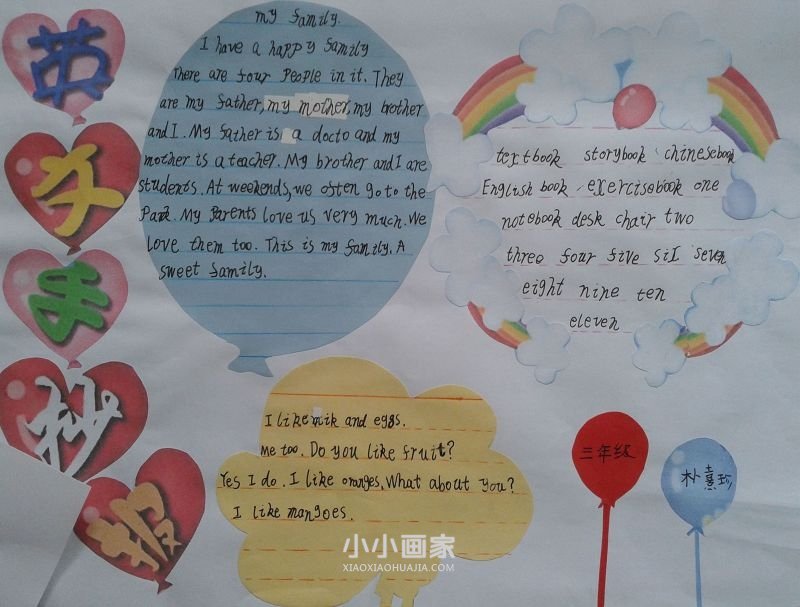 英
文
手
抄
报
my family.
I have a happy family
There are four people in it. They
are my father, my mother, my brother
and I. My father is a docto and my
mother is a teacher. My brother and I are
students. At weekends, we often go to the
Park. My Parents love us very much. We
love them too. This is my family. A
sweet family.
textbook storybook、chinesebook
English book、exercisebook one
notebook desk chair two
three four five siI seven
eight nine ten
eleven
I like mik and eggs.
Me too. Do you like fruit?
Yes I do. I like oranges. What about you?
I like mangoes.
三年级
朴熹珍
小小画家
XIAOXIAOHUAJIA.COM